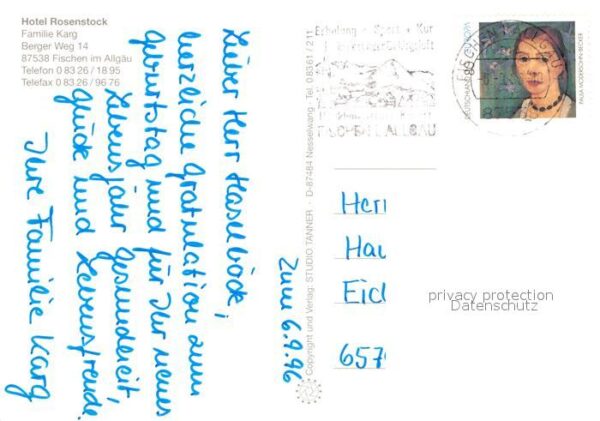 Hotel Rosenstock
Familie Karg
Berger Weg 14
87538 Fischen im Allgäu
Telefon 0 83 26 / 18 95
Telefax 0 83 26 / 96 76
Lieber Herr Haselböck,
herzliche Gratulation zum
Geburtstag und für Ihr neues
Lebensjahr Gesundheit,
Glück und Lebensfreude.
Ihre Familie Karg
zum 6.9.96
Copyright und Verlag: STUDIO TANNER · D-87484 Nesselwang · Tel. 0 83 61 / 2 11
Erholung · Sport · Kur
FISCHEN I. ALLGÄU
DEUTSCHLAND 80
EUROPA
PAULA MODERSOHN-BECKER
Herr
Hau
Eic
657
privacy protection
Datenschutz